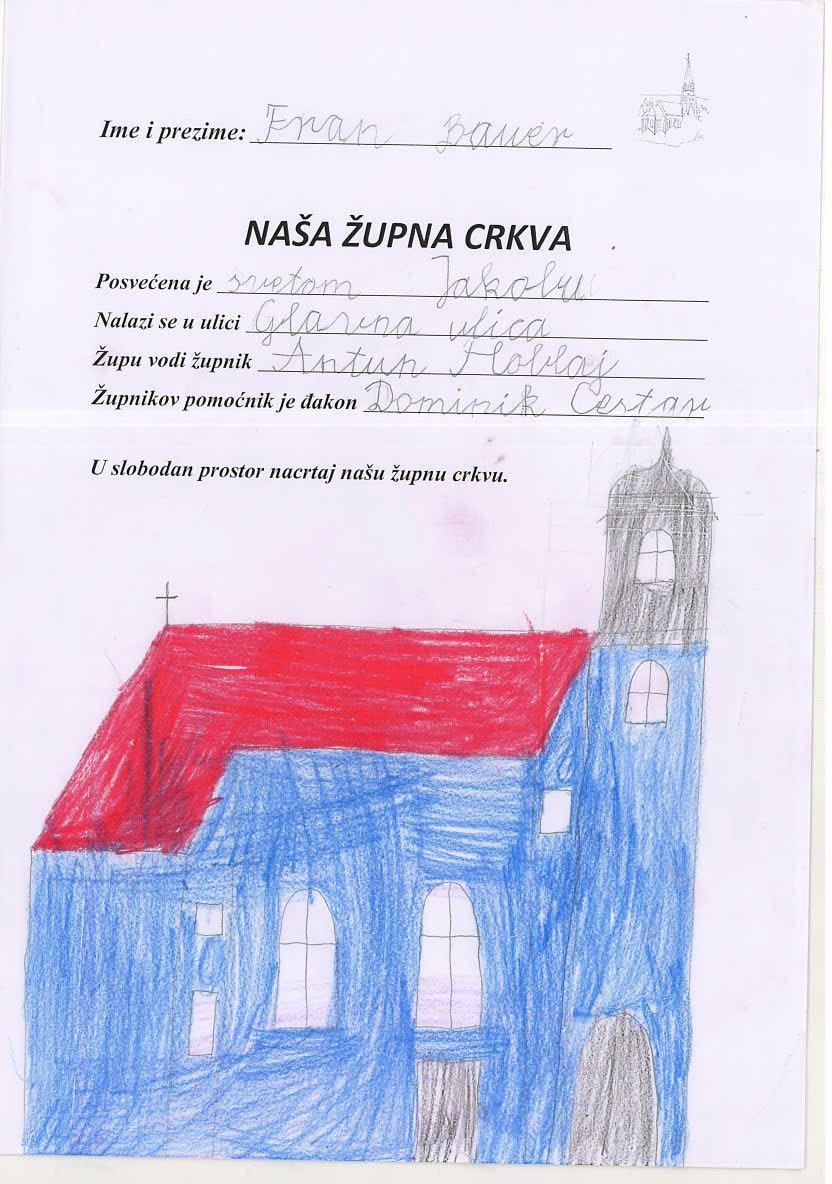 Ime i prezime: Fran Bauer
NAŠA ŽUPNA CRKVA
Posvećena je svetom Jakobu
Nalazi se u ulici Glavna ulica
Župu vodi župnik Antun Hoblaj
Župnikov pomoćnik je đakon Dominik Cestar
U slobodan prostor nacrtaj našu župnu crkvu.